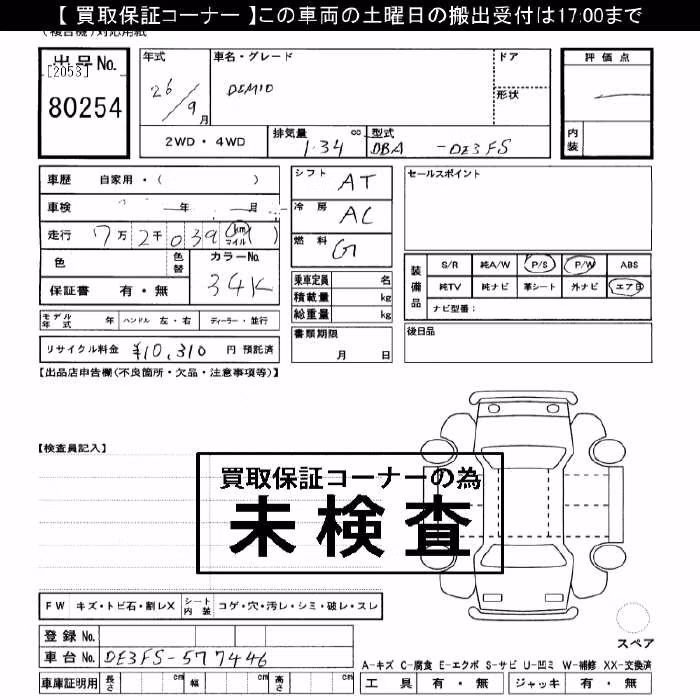 【 買取保証コーナー 】この車両の土曜日の搬出受付は17:00まで
出品No.
[2053]
80254
年式
26/9月
車名・グレード
DEMIO
ドア
形状
評価点
内装
2WD・4WD
排気量
1.34
cc
型式
DBA -DE3FS
車歴 自家用・( )
車検 年 月
走行 7万2千039(km マイル)
色
色替
カラーNo.
34K
保証書 有・無
シフト AT
冷房 AC
燃料 G
乗車定員 名
積載量 kg
総重量 kg
セールスポイント
装備品
S/R 純A/W P/S P/W ABS
純TV 純ナビ 革シート 外ナビ エアB
ナビ型番：
モデル年式 年 ハンドル 左・右 ディーラー・並行
書類期限
月 日
後日品
リサイクル料金 ¥10,310 円 預託済
【出品店申告欄(不良箇所・欠品・注意事項等)】
【検査員記入】
買取保証コーナーの為
未検査
FW キズ・トビ石・割レX シート内装 コゲ・穴・汚レ・シミ・破レ・スレ
スペア
登録No.
車台No. DE3FS-577446
A-キズ C-腐食 E-エクボ S-サビ U-凹ミ W-補修 XX-交換済
車庫証明用 長さ cm 幅 cm 高さ cm
工具 有・無 ジャッキ 有・無